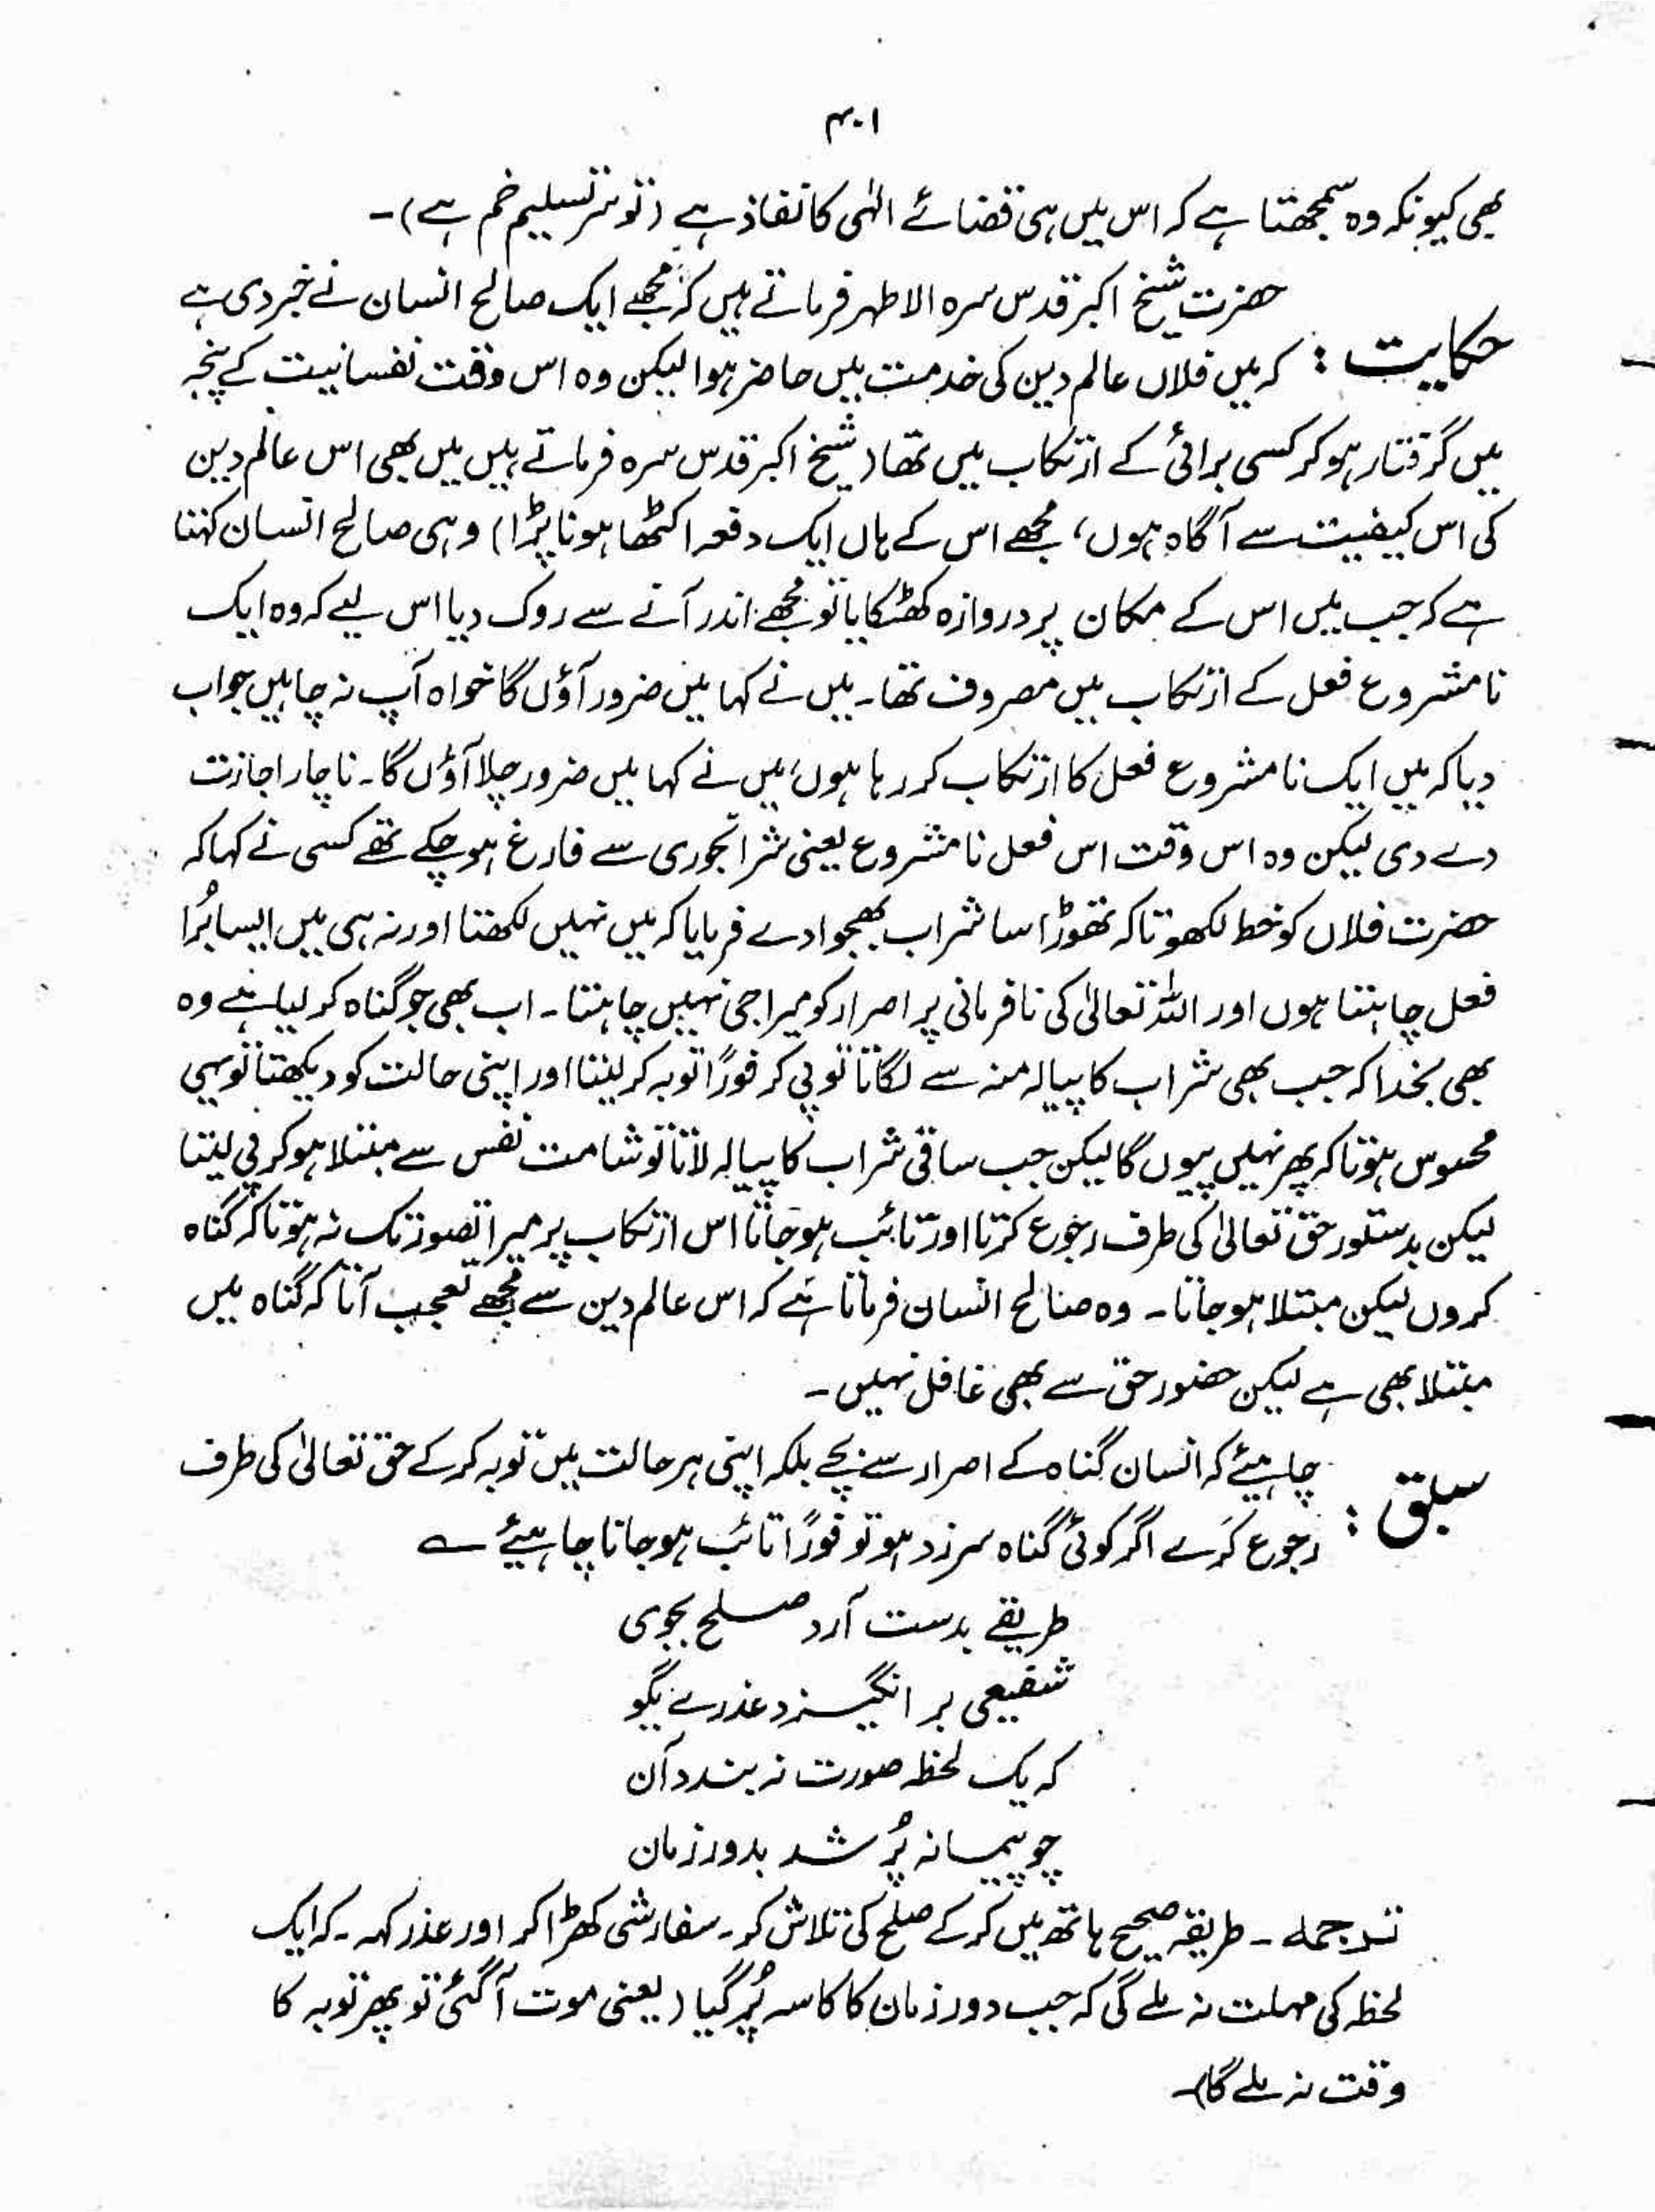 ۴۰۱
بھی کیونکہ وہ سمجھتا ہے کہ اس میں ہی قضائے الٰہی کا نفاذ ہے (تو سر تسلیم خم ہے)۔
حضرت شیخ اکبر قدس سرہ الاطہر فرماتے ہیں کہ مجھے ایک صالح انسان نے خبر دی ہے
حکایت : کہ میں فلاں عالم دین کی خدمت میں حاضر ہوا لیکن وہ اس وقت نفسانیت کے پنجہ
میں گرفتار ہو کر کسی برائی کے ارتکاب میں تھا (شیخ اکبر قدس سرہ فرماتے ہیں میں بھی اس عالم دین
کی اس کیفیت سے آگاہ ہوں، مجھے اس کے ہاں ایک دفعہ اکٹھا ہونا پڑا) وہی صالح انسان کہتا
ہے کہ جب میں اس کے مکان پر دروازہ کھٹکایا تو مجھے اندر آنے سے روک دیا اس لیے کہ وہ ایک
نا مشروع فعل کے ارتکاب میں مصروف تھا۔ میں نے کہا میں ضرور آؤں گا خواہ آپ نہ چاہیں جواب
دیا کہ میں ایک نا مشروع فعل کا ارتکاب کر رہا ہوں، میں نے کہا میں ضرور چلا آؤں گا۔ ناچار اجازت
دے دی لیکن وہ اس وقت اس فعل نا مشروع یعنی شرابخوری سے فارغ ہو چکے تھے کسی نے کہا کہ
حضرت فلاں کو خط لکھو تاکہ تھوڑا سا شراب بھجوا دے فرمایا کہ میں نہیں لکھتا اور نہ ہی میں ایسا بُرا
فعل چاہتا ہوں اور اللہ تعالیٰ کی نافرمانی پر اصرار کو میرا جی نہیں چاہتا۔ اب بھی جو گناہ کر لیا ہے وہ
بھی بخدا کہ جب بھی شراب کا پیالہ منہ سے لگاتا تو پی کر فورًا توبہ کر لیتا اور اپنی حالت کو دیکھتا تو یہی
محسوس ہوتا کہ پھر نہیں پیوں گا لیکن جب ساقی شراب کا پیالہ لاتا تو شامت نفس سے مبتلا ہو کر پی لیتا
لیکن بدستور حق تعالیٰ کی طرف رجوع کرتا اور تائب ہو جاتا اس ارتکاب پر میرا تصور تک نہ ہوتا کہ گناہ
کروں لیکن مبتلا ہو جاتا۔ وہ صالح انسان فرماتا ہے کہ اس عالم دین سے مجھے تعجب آتا کہ گناہ میں
مبتلا بھی ہے لیکن حضور حق سے بھی غافل نہیں۔
چاہیئے کہ انسان گناہ کے اصرار سے بچے بلکہ اپنی ہر حالت میں توبہ کر کے حق تعالیٰ کی طرف
سبق : رجوع کرے اگر کوئی گناہ سرزد ہو تو فورًا تائب ہو جانا چاہیئے ؎
طریقے بدست آرد صلح بجوی
شفیعی بر انگیزد عذرے بگو
کہ یک لحظہ صورت نہ بندد آن
چو پیمانہ پُر شد بدور زمان
ترجمہ۔ طریقہ صحیح ہاتھ میں کر کے صلح کی تلاش کر۔ سفارشی کھڑا کر اور عذر کہہ۔ کہ ایک
لحظہ کی مہلت نہ ملے گی کہ جب دور زمان کا کاسہ پُر گیا (یعنی موت آ گئی تو پھر توبہ کا
وقت نہ ملے گا)۔